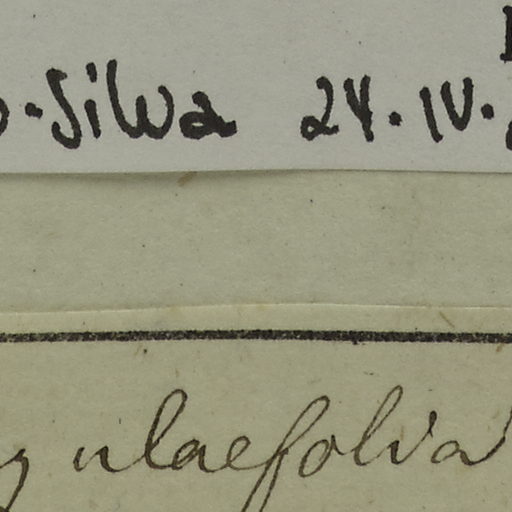 Silva 24.IV.
gulaefolia